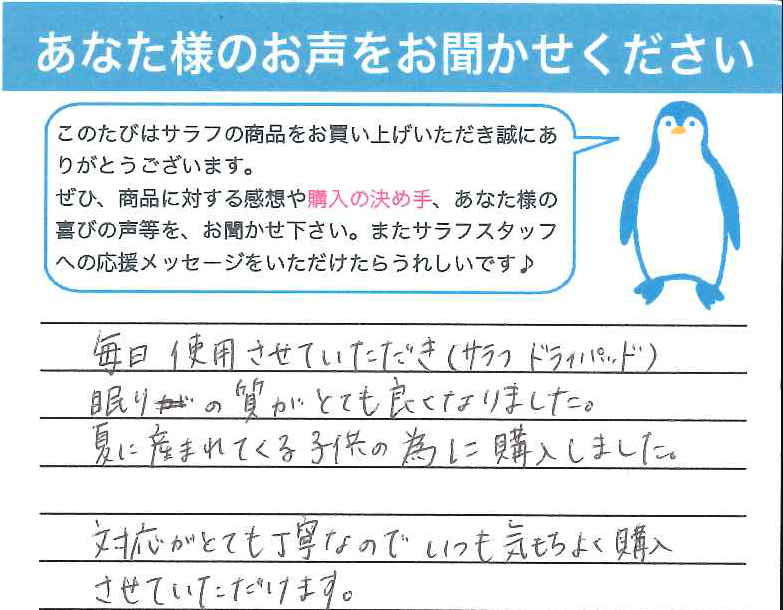 あなた様のお声をお聞かせください
このたびはサラフの商品をお買い上げいただき誠にあ
りがとうございます。
ぜひ、商品に対する感想や購入の決め手、あなた様の
喜びの声等を、お聞かせ下さい。またサラフスタッフ
への応援メッセージをいただけたらうれしいです♪
毎日使用させていただき(サラフ ドライパッド)
眠りの質がとても良くなりました。
夏に産まれてくる子供の為に購入しました。
対応がとても丁寧なので いつも気もちよく購入
させていただけます。